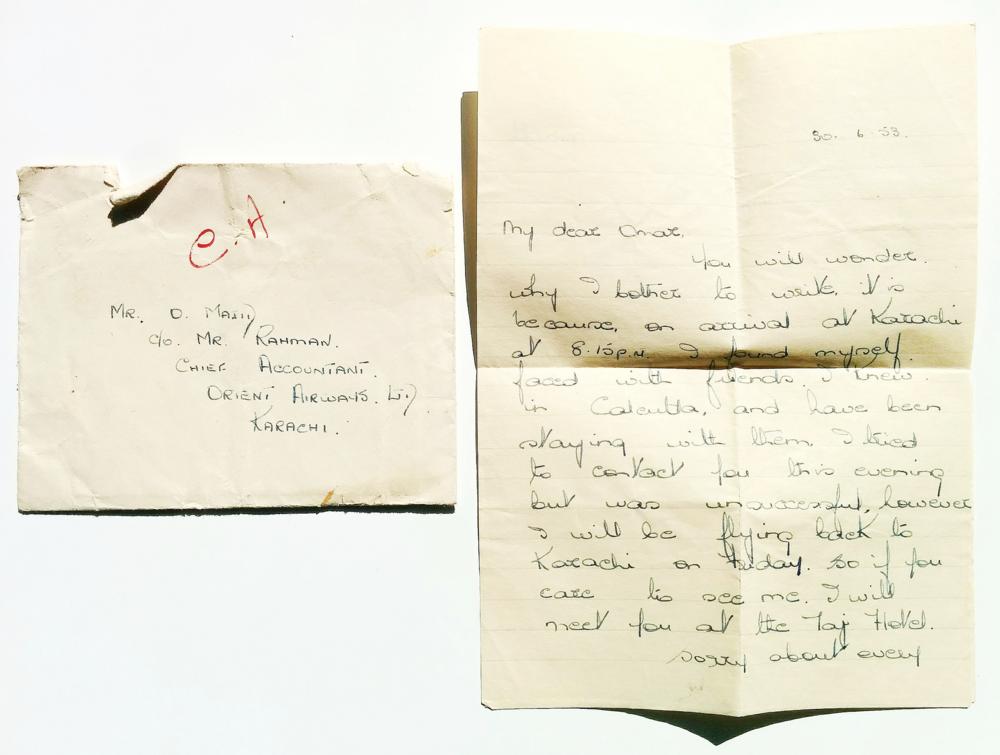 C.A
MR. O. MAJID
C/o. MR. RAHMAN.
CHIEF ACCOUNTANT.
ORIENT AIRWAYS. LTD.
KARACHI.
30. 6. 53.
My dear Omar,
You will wonder.
why I bother to write, it is
because, on arrival at Karachi
at 8.15P.M. I found myself
faced with friends. I knew.
in Calcutta, and have been
staying with them. I tried
to contact you this evening
but was unsuccessful, however
I will be flying back to
Karachi on Friday. So if you
care to see me. I will
meet you at the Taj Hotel.
Sorry about every